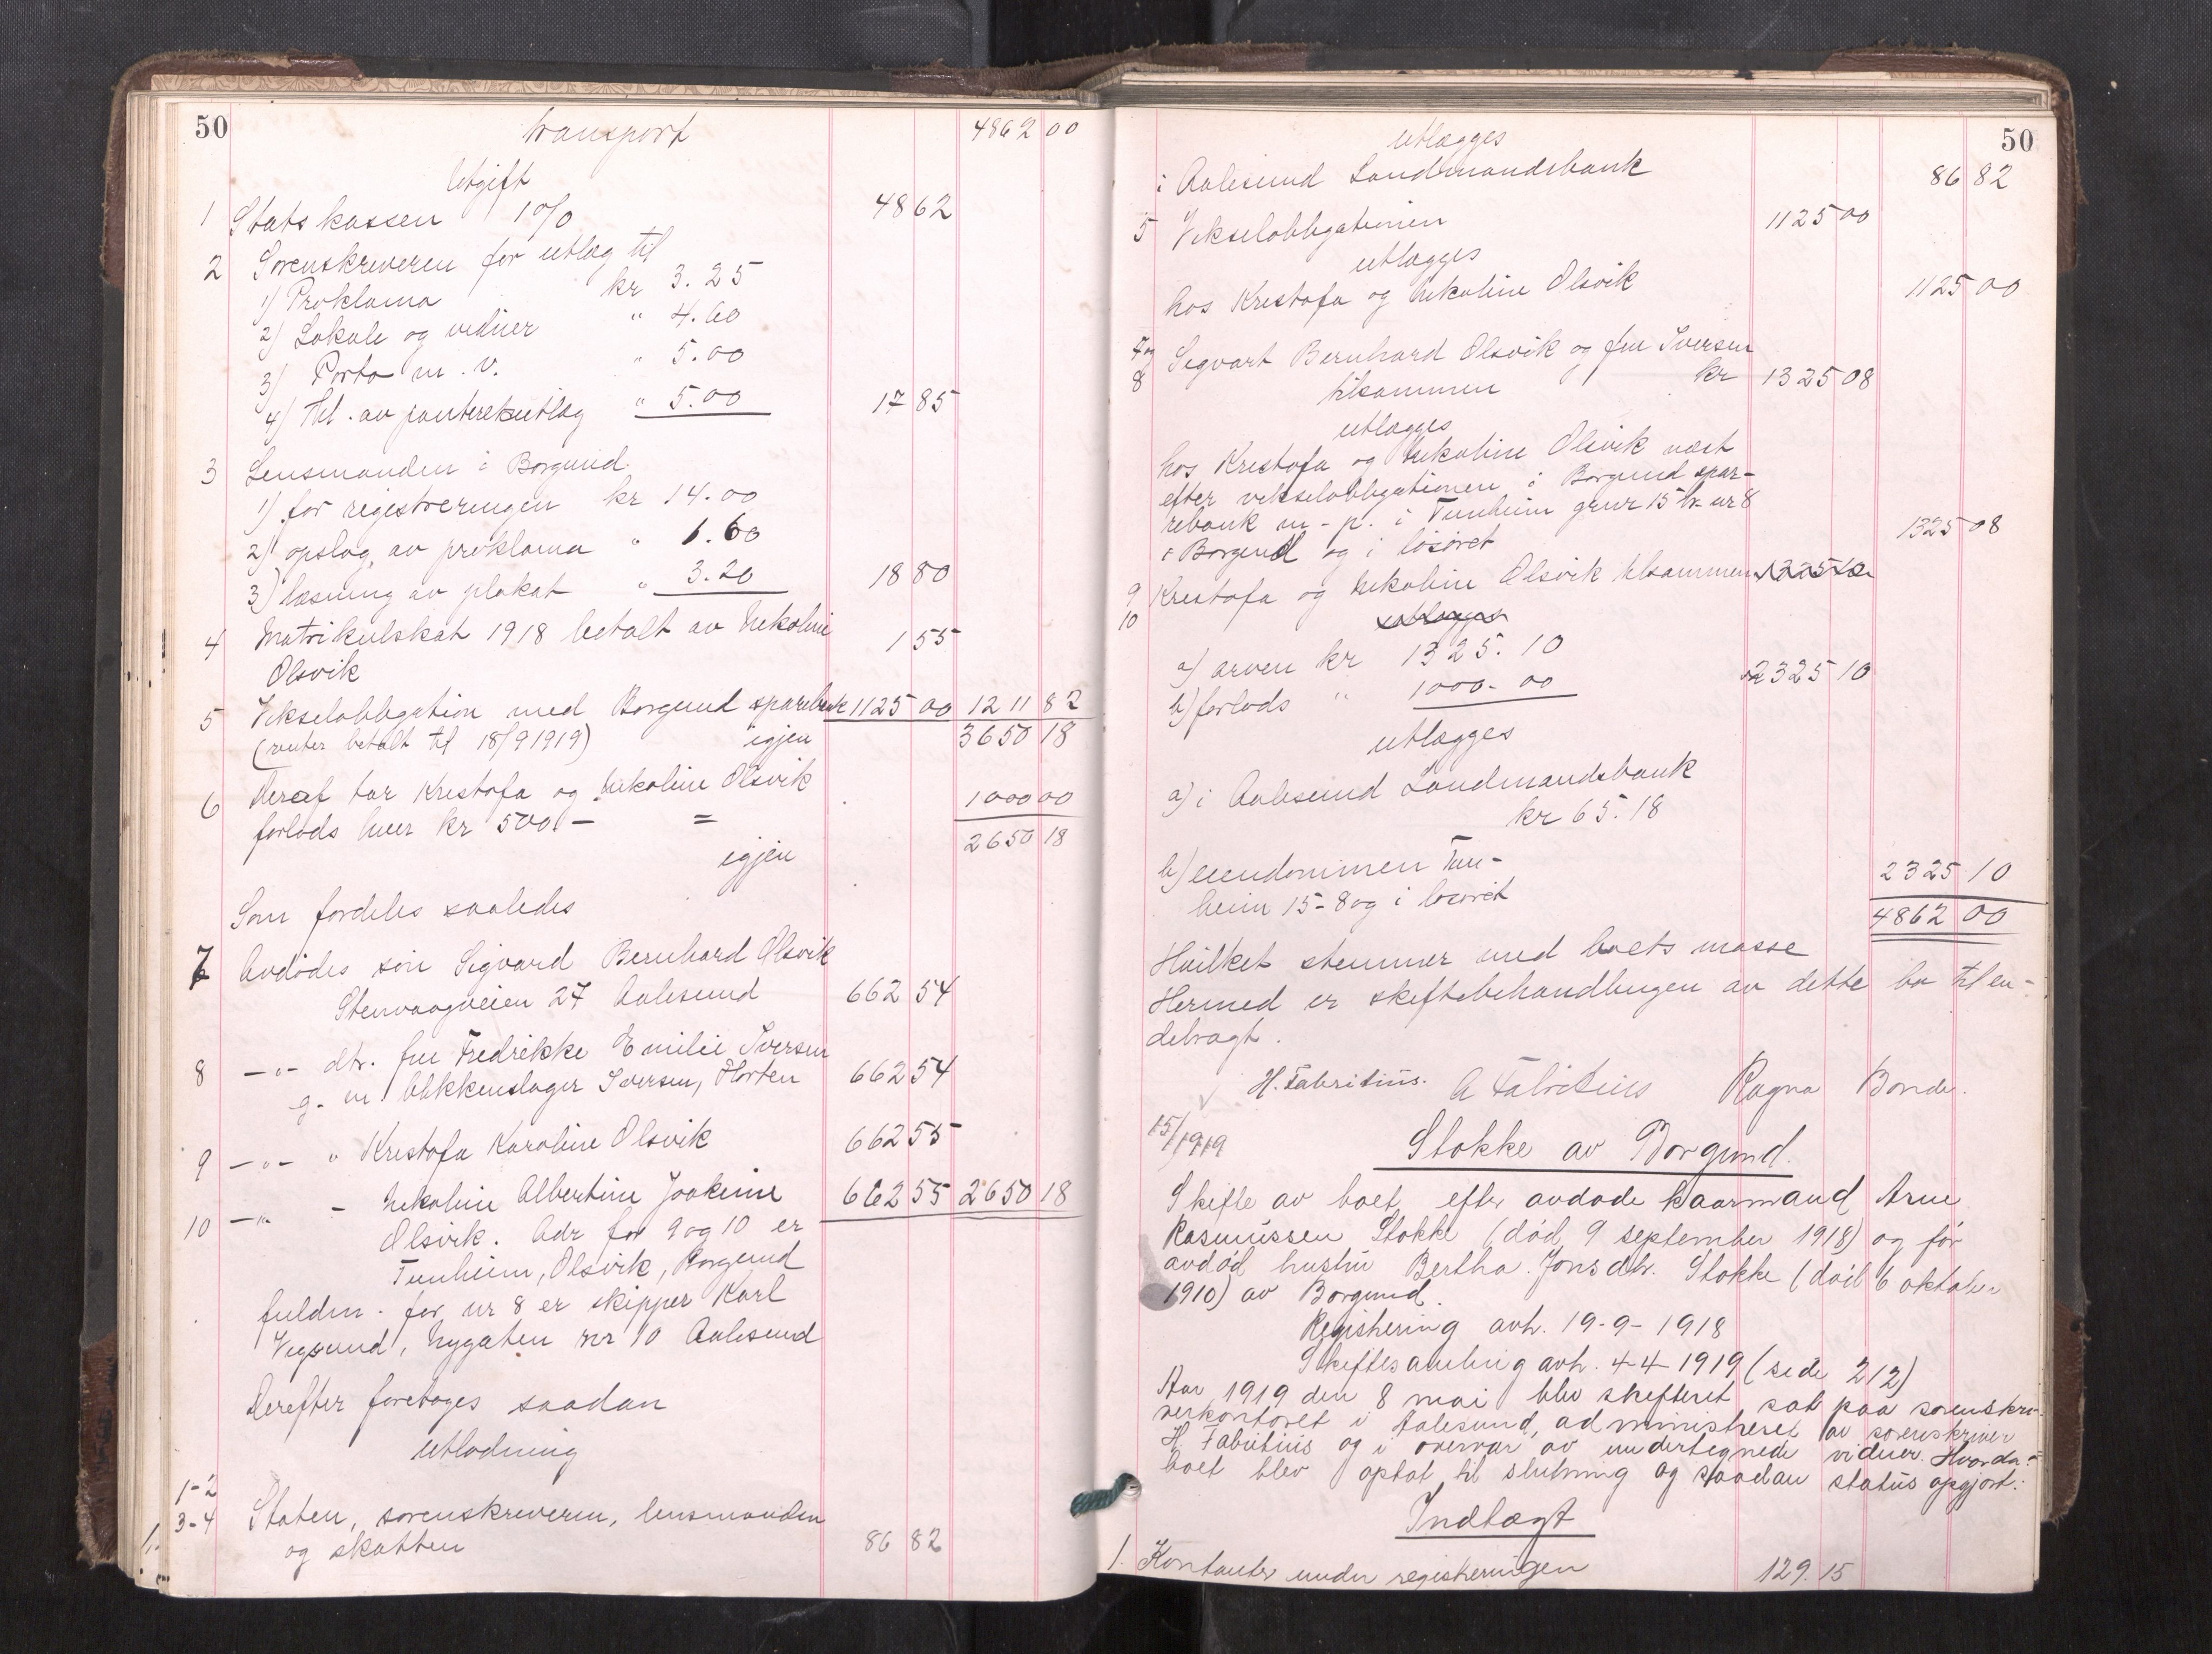 50
transport 4862 00
Utgift
1 Statskassen 1% 48 62
2 Sorenskriveren for utlæg til
1) Proklama kr 3.25
2) Lokale og vidner " 4.60
3) Porto m.v. " 5.00
4) Tgl. av panterekutlæg " 5.00 17 85
3 Lensmanden i Borgund.
1) for registreringen kr 14.00
2) opslag av proklama " 1.60
3) læsning av plakat " 3.20 18 80
4 Matrikulskat 1918 betalt av Nekoline 1 55
Olsvik
5 Vekselobligation med Borgund sparebank 1125 00 1211 82
(renter betalt til 18/9 1919) igjen 3650 18
6 Deraf tar Kristofa og Nekoline Olsvik
forlods hver kr 500.- = 1000 00
igjen 2650 18
Som fordeles saaledes
7 Avdødes søn Sigvard Bernhard Olsvik
Stenvaagveien 27 Aalesund 662 54
8 -"- dtr. fru Fredrikke Emilie Iversen
g. m blikkenslager Iversen, Horten 662 54
9 -"- " Kristofa Karoline Olsvik 662 55
10 -"- - Nekoline Albertine Joakime 662 55 2650 18
Olsvik. Adr for 9 og 10 er
Tunheim, Olsvik, Borgund
fuldm. for nr 8 er skipper Karl
Vegsund, Nygaten nr 10 Aalesund
Derefter foretages saadan
utlodning
1-2
3-4 Staten, sorenskriveren, lensmanden
og skatten 86 82
50
utlægges
i Aalesund Landmandsbank 86 82
5 Vekselobligationen 1125 00
utlægges
hos Kristofa og Nekoline Olsvik 1125 00
7 og Sigvart Bernhard Olsvik og fru Iversen
8 tilsammen kr 1325 08
utlægges
hos Kristofa og Nekoline Olsvik næst
efter vekselobligationen i Borgund spar-
rebank m-p. i Tunheim gnr 15 br. nr 8
i Borgund og i løsøret 1325 08
9 Kristofa og Nekoline Olsvik tilsammen 1325 10
10 utlægges
a) arven kr 1325.10
b) forlods " 1000.00 2325 10
utlægges
a) i Aalesund Landmandsbank
kr 65.18
b) eiendommen Tun-
heim 15-8 og i løsøret 2325 10
4862 00
Hvilket stemmer med boets masse
Hermed er skiftebehandlingen av dette bo til en-
debragt.
H. Fabritius. A Fabritius Ragna Bonde.
15/1919
Stokke av Borgund.
Skifte av boet efter avdøde kaarmand Arne
Rasmussen Stokke (død 9 september 1918) og før
avdød hustru Bertha Jonsdtr. Stokke (død 6 oktober
1910) av Borgund.
Registrering avh. 19-9-1918
Skiftesamling avh. 4-4-1919 (side 212)
Aar 1919 den 8 mai blev skifteret sat paa sorenskri-
verkontoret i Aalesund, administreret av sorenskriver
H Fabritius og i overvær av undertegnede vidner. Hvorda-
boet blev optat til slutning og saadan status opgjort:
Indtægt
1. Kontanter under registreringen 129.15